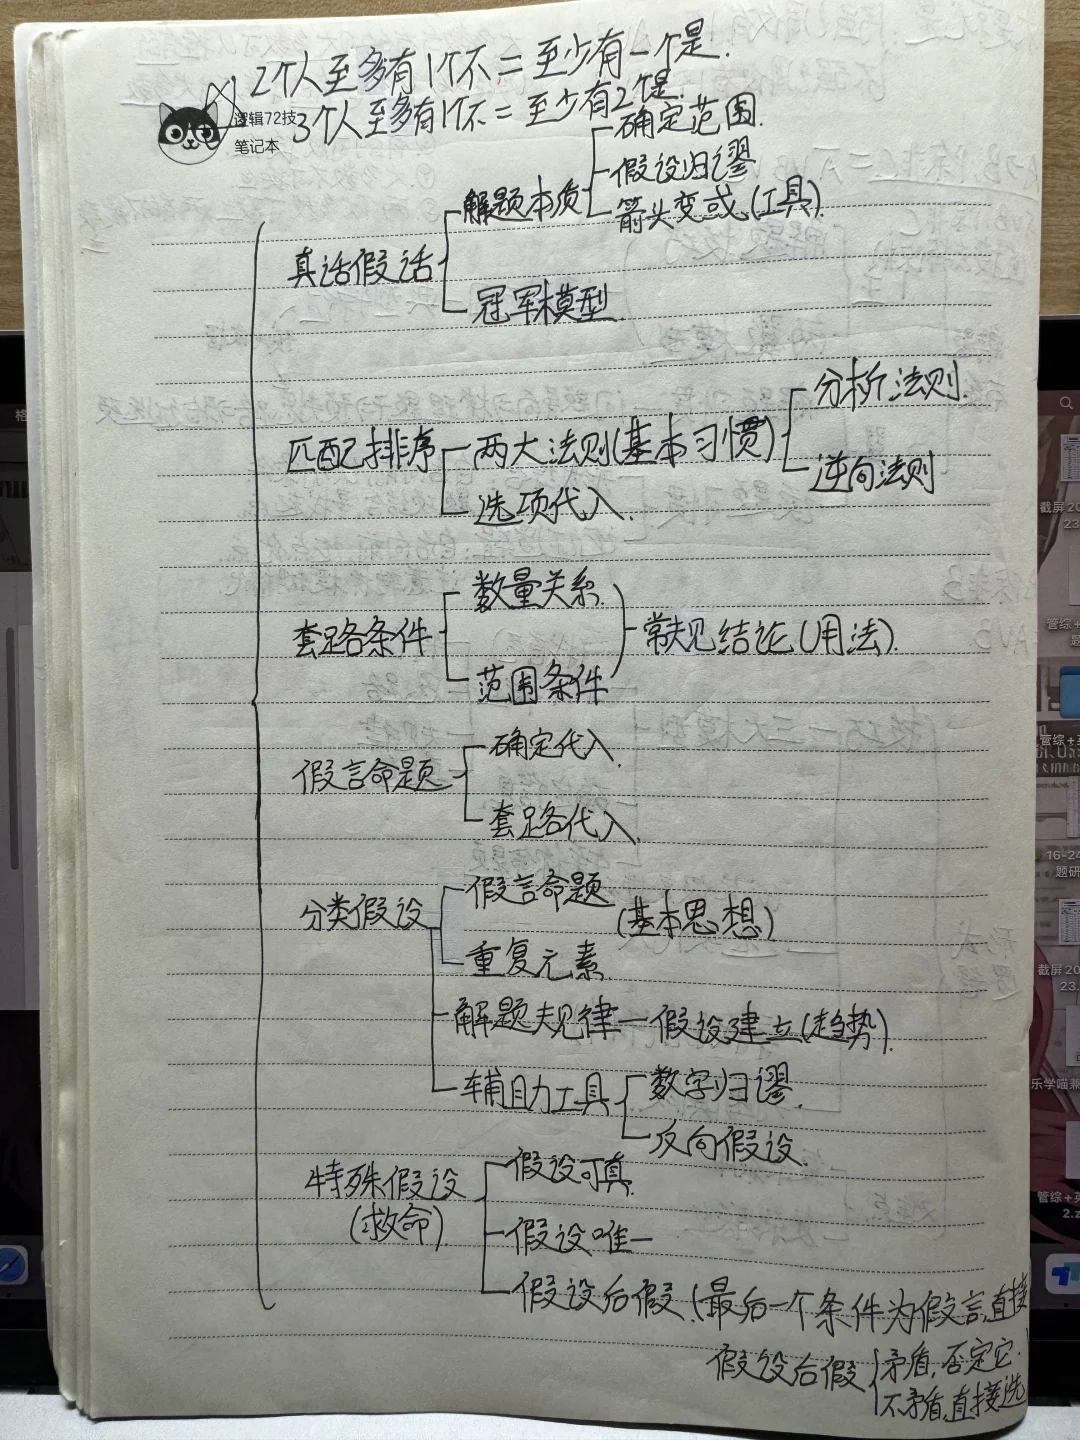 2个人至多有1个不=至少有一个是.
3个人至多有1个不=至少有2个是.
逻辑72技
笔记本
确定范围.
解题本质
假设归谬
箭头变或(工具).
真话假话
冠军模型
分析法则.
匹配排序
两大法则(基本习惯)
逆向法则
选项代入.
数量关系.
套路条件
常见结论(用法).
范围条件
确定代入.
假言命题
套路代入.
假言命题
分类假设
(基本思想)
重复元素.
解题规律—假设建立(趋势).
辅助工具
数字归谬.
反向假设.
特殊假设
(救命).
假设可真.
假设唯一
假设后假.(最后一个条件为假言,直接
假设后假
矛盾,否定它.
不矛盾,直接选
截屏 20
23.
管综+
题
管综+英
16-24
题研
截屏 20
23.
乐学喵兼
管综+英
2.z
格